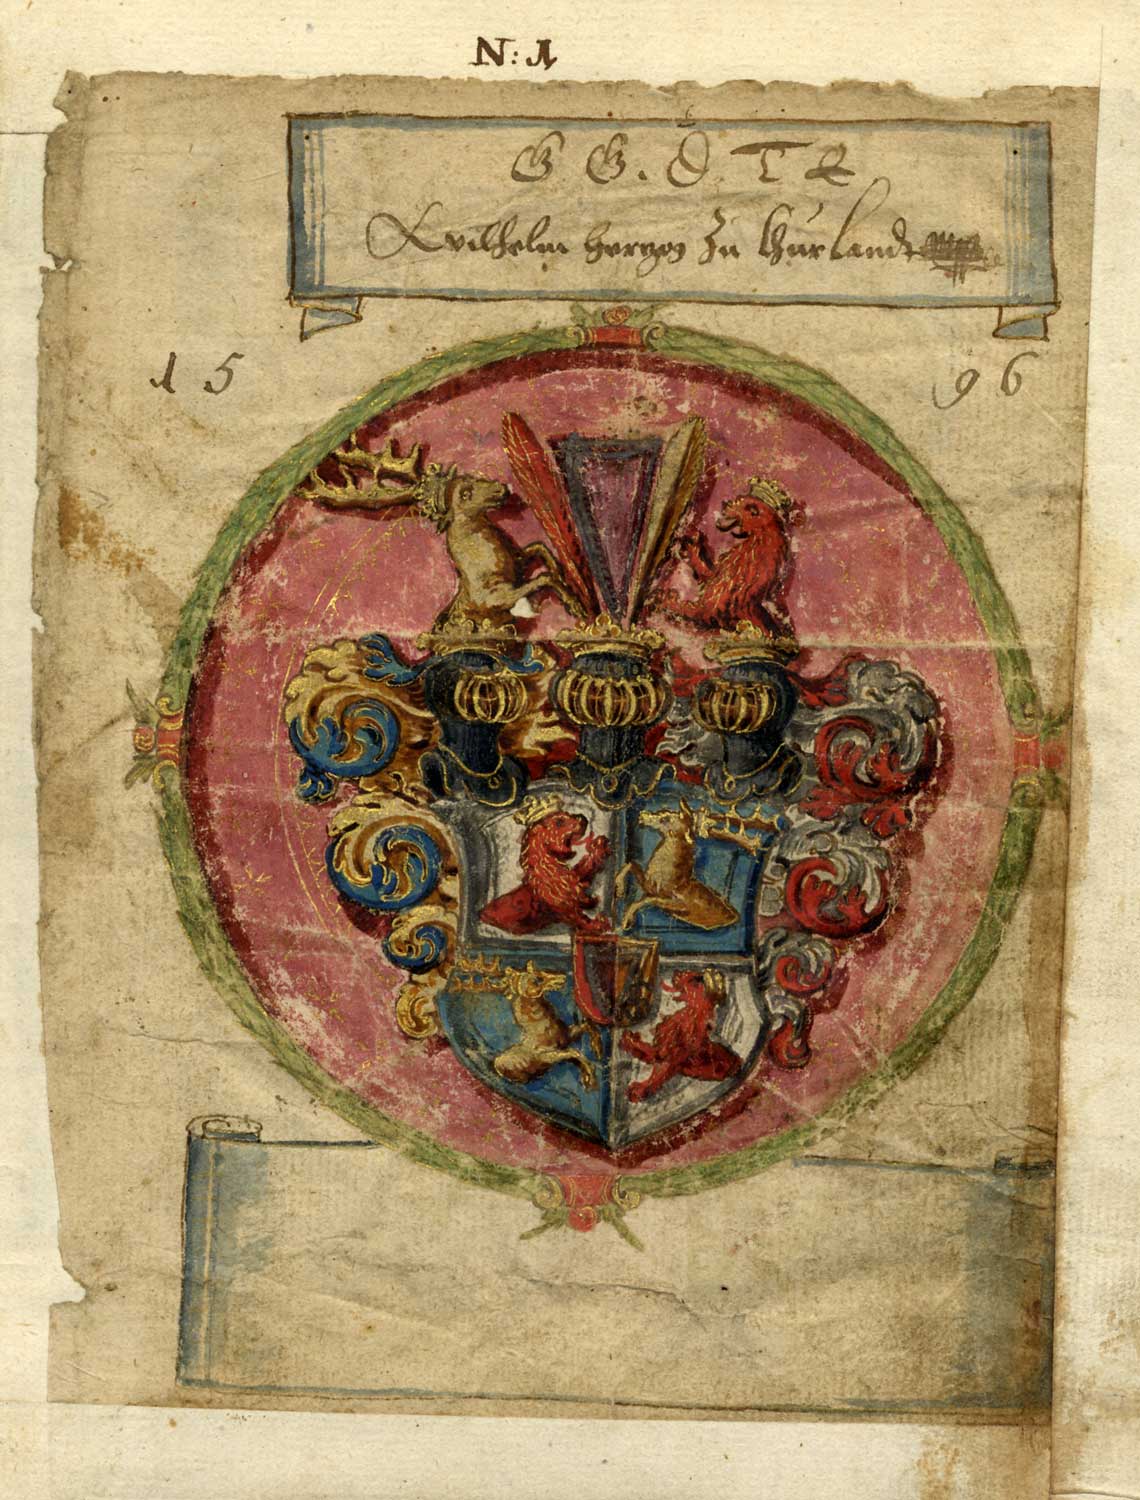 N: 1
G G. D. T R
Wilhelm Herzog Zu Churlandt
15 96